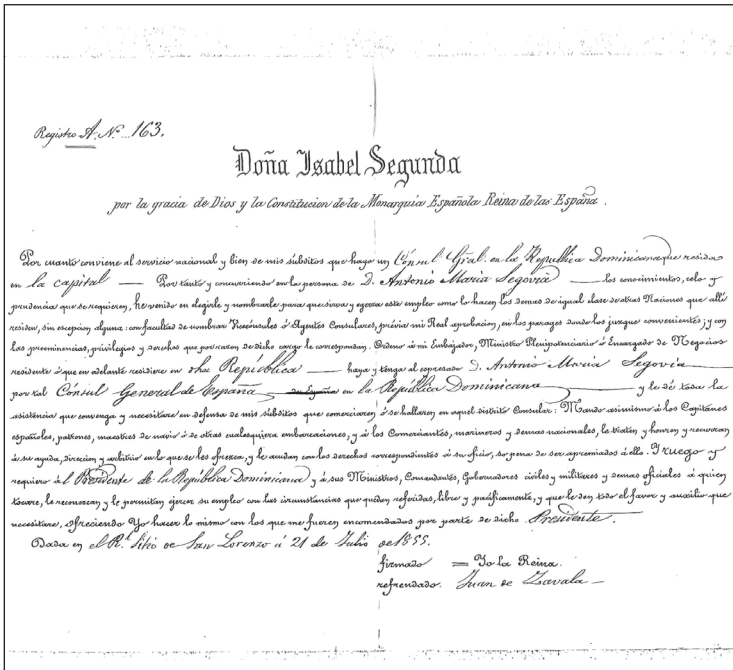 Registro A. Nº 163.
Doña Isabel Segunda
por la gracia de Dios y la Constitucion de la Monarquia Española Reina de las España .
Por cuanto conviene al servicio nacional y bien de mis súbditos que haya un Cónsul Gral. en la República Dominicana que resida
en la capital — Por tanto y concurriendo en la persona de D. Antonio Maria Segovia — los conocimientos, celo y
prudencia que se requieren, he venido en elegirle y nombrarle para que sirva y egerza este empleo como lo hacen los demas de igual clase de otras Naciones que allí
residen, sin escepcion alguna: con facultad de nombrar Vicecónsules ó Agentes Consulares, prévia mi Real aprobacion, en los parages donde los juzgue convenientes; y con
las preeminencias, privilegios y derechos que por razon de dicho cargo le correspondan. Ordeno á mi Embajador, Ministro Plenipotenciario ó Encargado de Negocios
residente ó que en adelante residiere en dha República — haya y tenga al espresado D. Antonio Maria Segovia
por tal Cónsul General de España — de España en la República Dominicana — y le dé toda la
asistencia que convenga y necesitare en defensa de mis súbditos que comerciaren ó se hallaren en aquel distrito Consular: Mando asimismo á los Capitanes
españoles, patrones, maestres de navio ó de otras cualesquiera embarcaciones, y á los Comerciantes, marineros y demas nacionales, le traten y honren y recurran
á su ayuda, direccion y arbitrio en lo que se les ofrezca, y le acudan con los derechos correspondientes á su oficio, so pena de ser apremiados á ello. Y ruego y
requiero á el Presidente de la República Dominicana y á sus Ministros, Comandantes, Gobernadores civiles y militares y demas oficiales á quien
tocare, le reconozcan y le permitan ejercer su empleo con las circunstancias que quedan referidas, libre y pacíficamente, y que le den todo el favor y auxilio que
necesitare, ofreciendo Yo hacer lo mismo con los que me fueren encomendados por parte de dicho Presidente.
Dada en el Rl. Sitio de San Lorenzo á 21 de Julio de 1855.
firmado = Yo la Reina.
refrendado. Juan de Zavala —